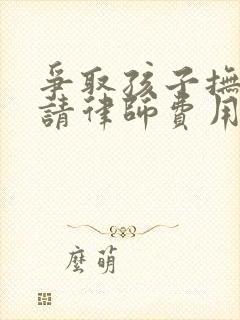 爭取孩子撫
請律師費用
麼萌